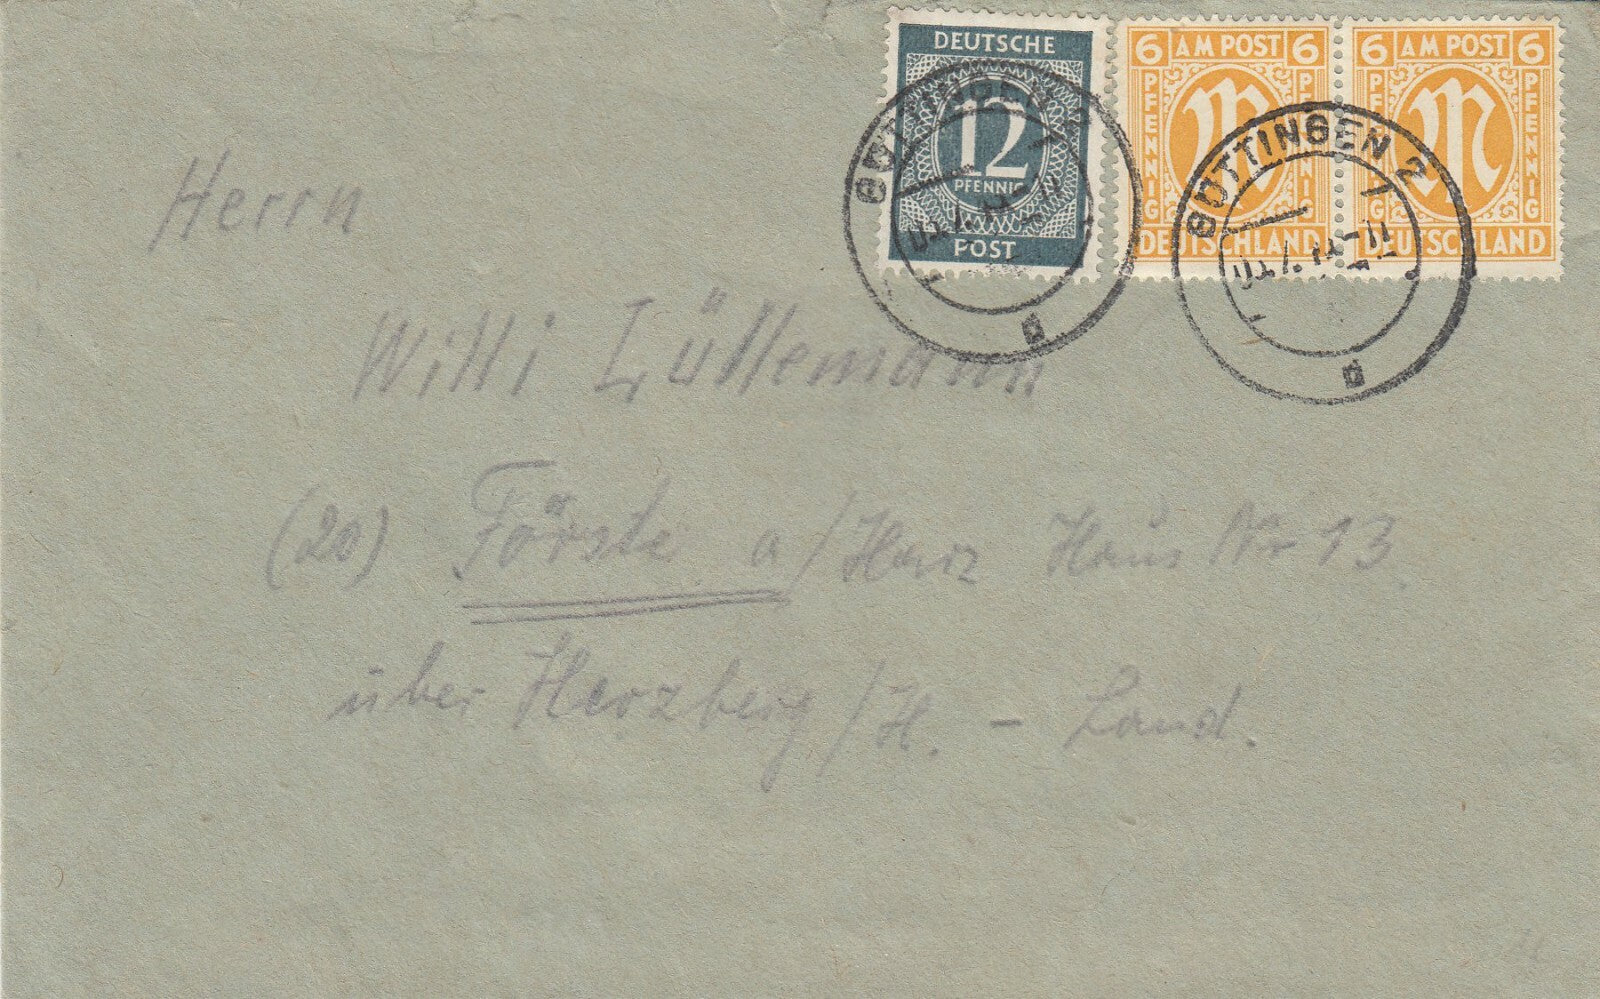 DEUTSCHE
12
PFENNIG
POST
6 AM POST 6
PFENNIG
PFENNIG
DEUTSCHLAND
6 AM POST 6
PFENNIG
PFENNIG
DEUTSCHLAND
GÖTTINGEN
GÖTTINGEN 2
Herrn
Willi Lüllemann
(20) Förste a/Harz Haus Nr 13
über Herzberg/H. - Land.